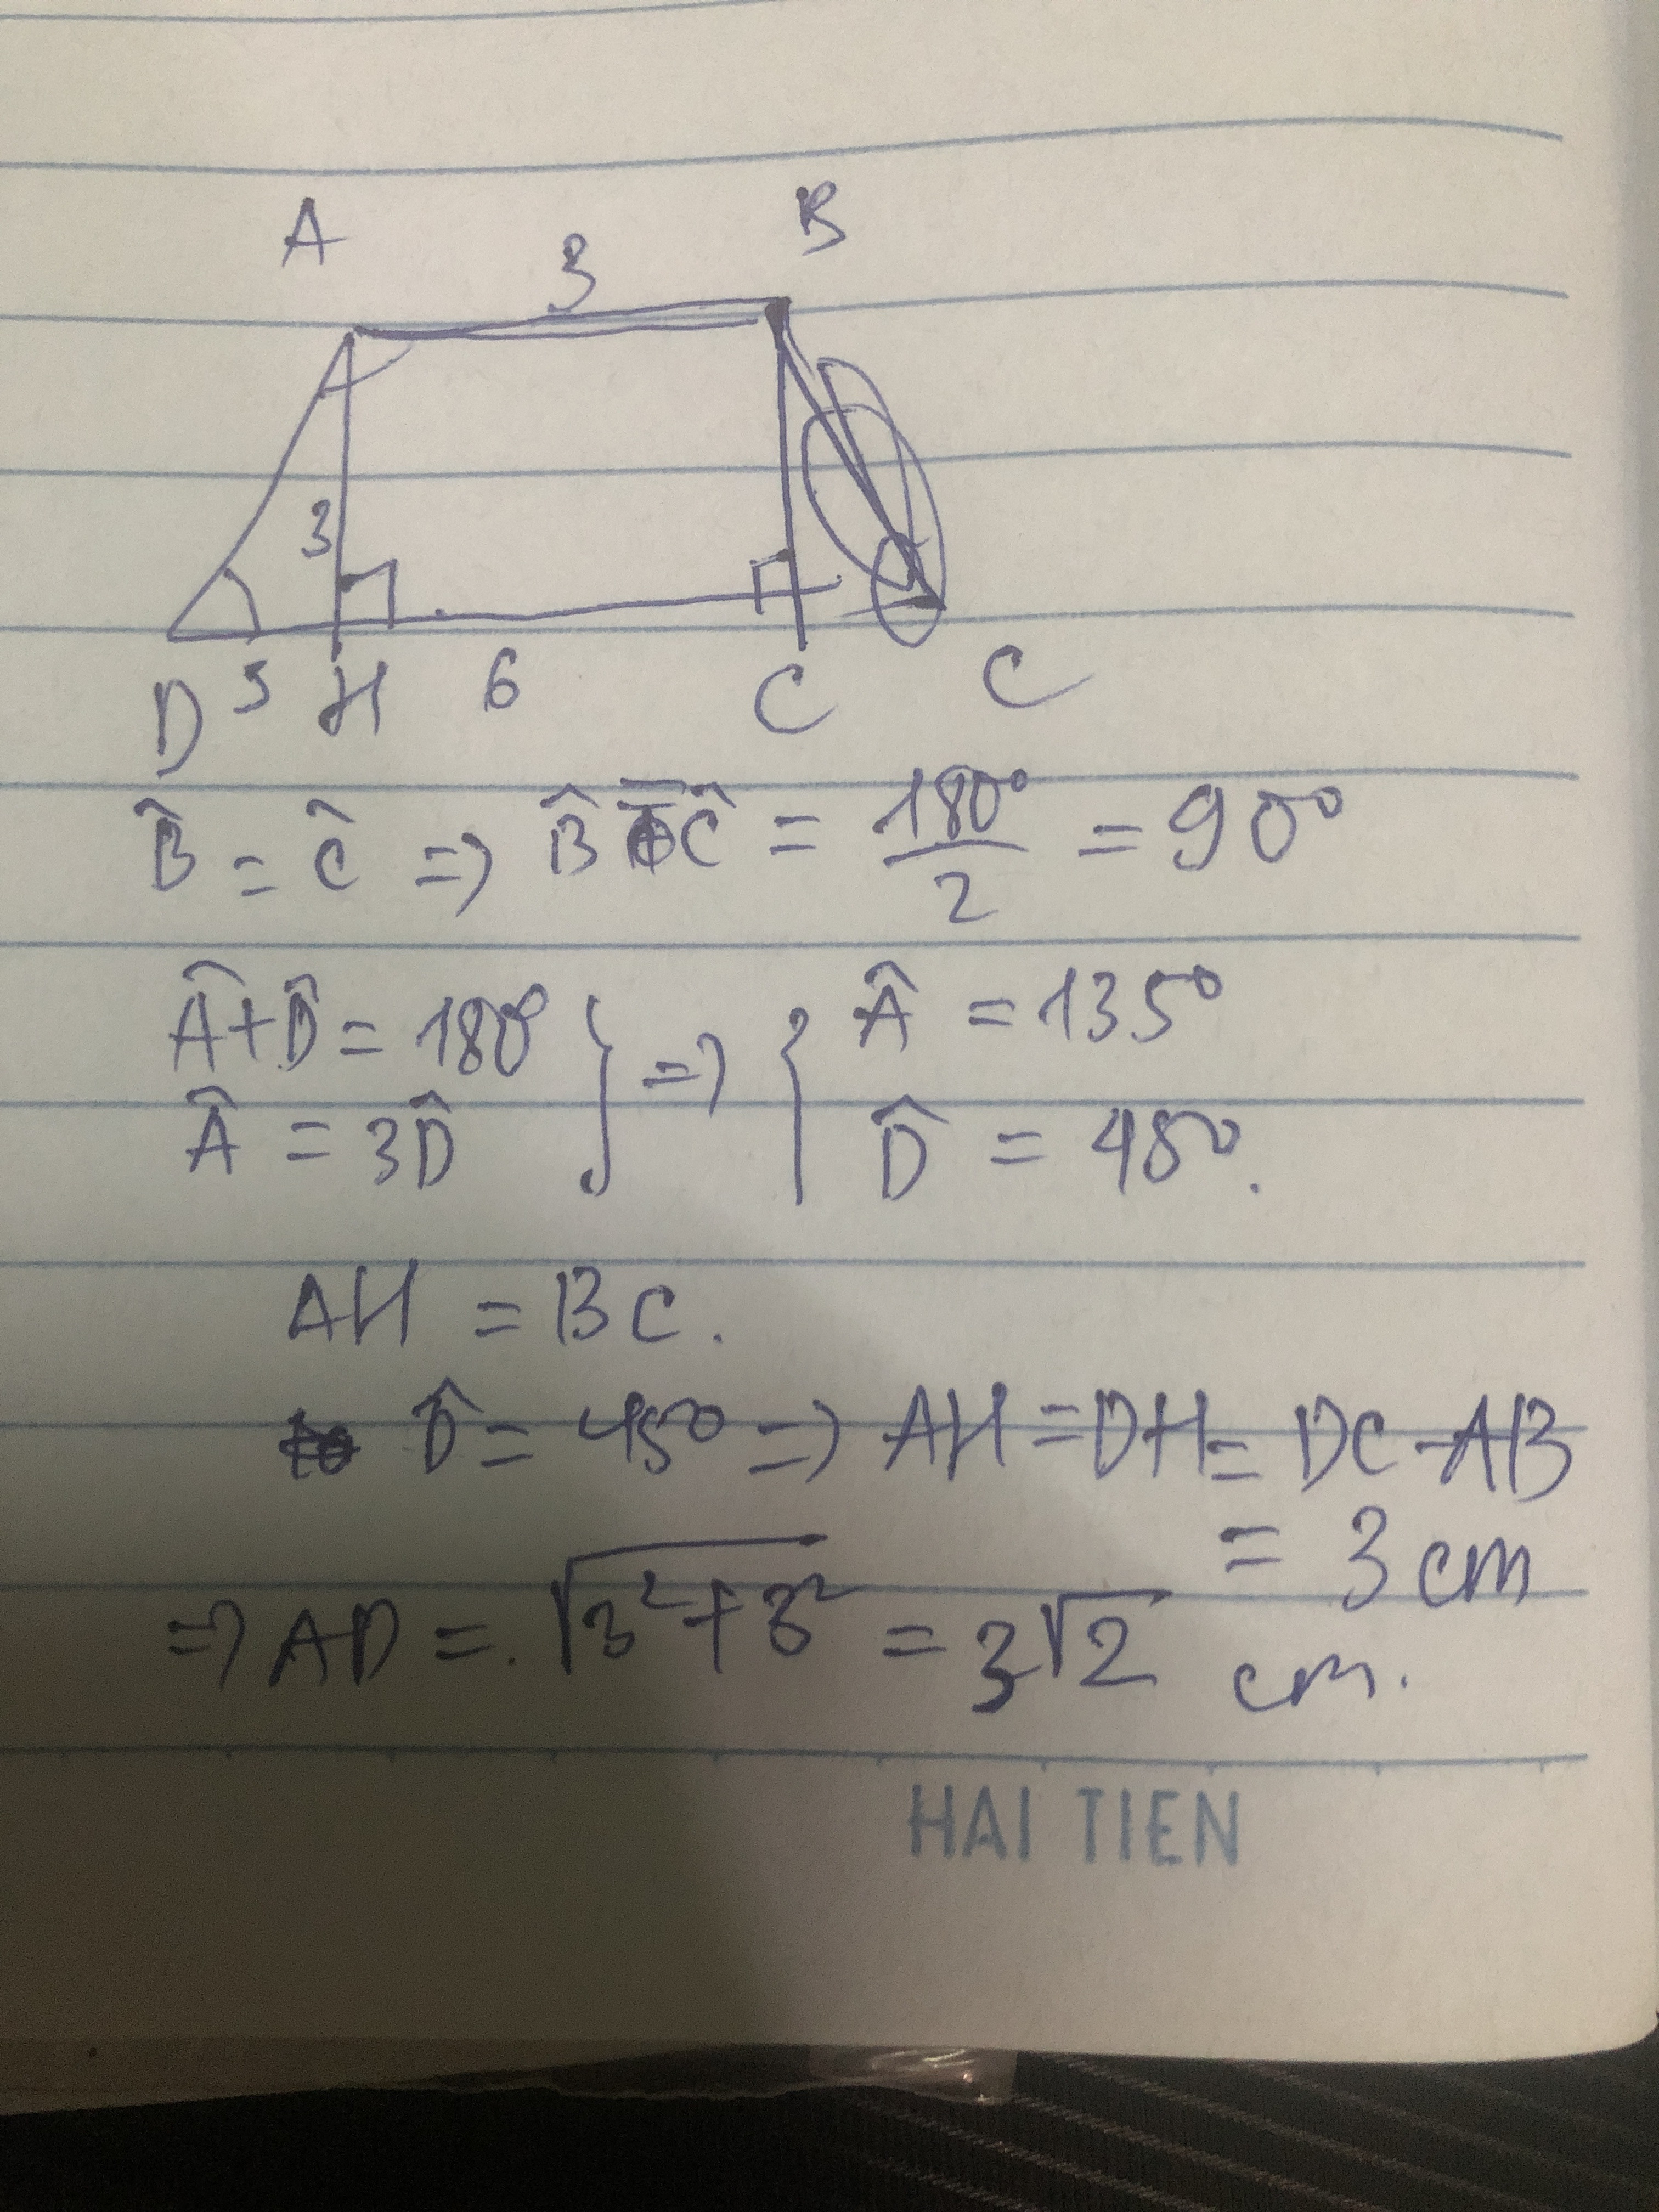 A B
3
3
D 3 H 6 C C
B̂ = Ĉ => B̂ Ĉ = 180°/2 = 90°
Â+D̂ = 180° } => { Â = 135°
Â = 3D̂ D̂ = 45°.
AH = BC.
D̂ = 45° => AH = DH = DC - AB
= 3 cm
=> AD = √3²+3² = 3√2 cm.
HAI TIEN